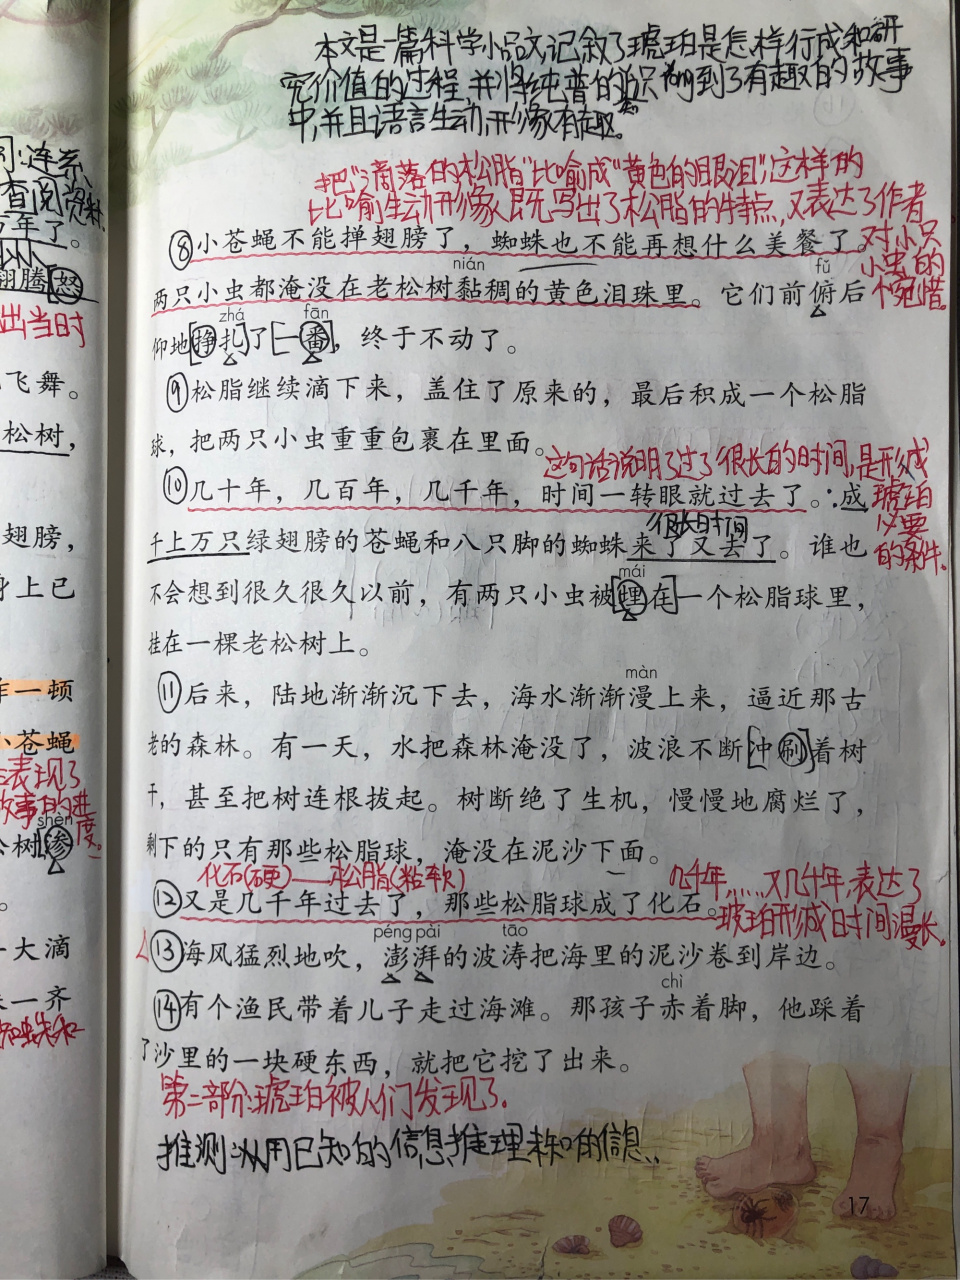 本文是一篇科学小品文记叙了琥珀是怎样行成和研
究价值的过程,并将纯普的
到了有趣的故事
中,并且语言生动,形像有趣。
把“滴落的松脂”比喻成“黄色的眼泪”,这样的
比喻生动形像,既写出了松脂的特点,又表达了作者
对小只
小虫的
惋惜。
⑧小苍蝇不能掸翅膀了,蜘蛛也不能再想什么美餐了。
nián
fǔ
两只小虫都淹没在老松树黏稠的黄色泪珠里。它们前俯后
zhá
fān
仰地[挣扎]了[一番],终于不动了。
⑨松脂继续滴下来,盖住了原来的,最后积成一个松脂
球,把两只小虫重重包裹在里面。
这句话说明了过了很长的时间,是形成
琥珀
必要
的条件。
⑩几十年,几百年,几千年,时间一转眼就过去了。成
很长时间
千上万只绿翅膀的苍蝇和八只脚的蜘蛛来了又去了。谁也
mái
不会想到很久很久以前,有两只小虫被[埋在]一个松脂球里,
挂在一棵老松树上。
màn
⑪后来,陆地渐渐沉下去,海水渐渐漫上来,逼近那古
老的森林。有一天,水把森林淹没了,波浪不断[冲刷]着树
干,甚至把树连根拔起。树断绝了生机,慢慢地腐烂了,
剩下的只有那些松脂球,淹没在泥沙下面。
化石(硬)——松脂(粘软)
几千年……又几千年,表达了
琥珀形成时间漫长。
⑫又是几千年过去了,那些松脂球成了化石。
péng pài
tāo
⑬海风猛烈地吹,澎湃的波涛把海里的泥沙卷到岸边。
chì
⑭有个渔民带着儿子走过海滩。那孩子赤着脚,他踩着
了沙里的一块硬东西,就把它挖了出来。
第二部分:琥珀被人们发现了。
推测:从用已知的信息,推理未知的信息。
17
连系、
查阅资料,
年了。
翅腾[怒
出当时
飞舞。
松树,
翅膀,
身上已
一顿
小苍蝇
表现了
故事的进
度。
shèn
松树[渗
大滴
一齐